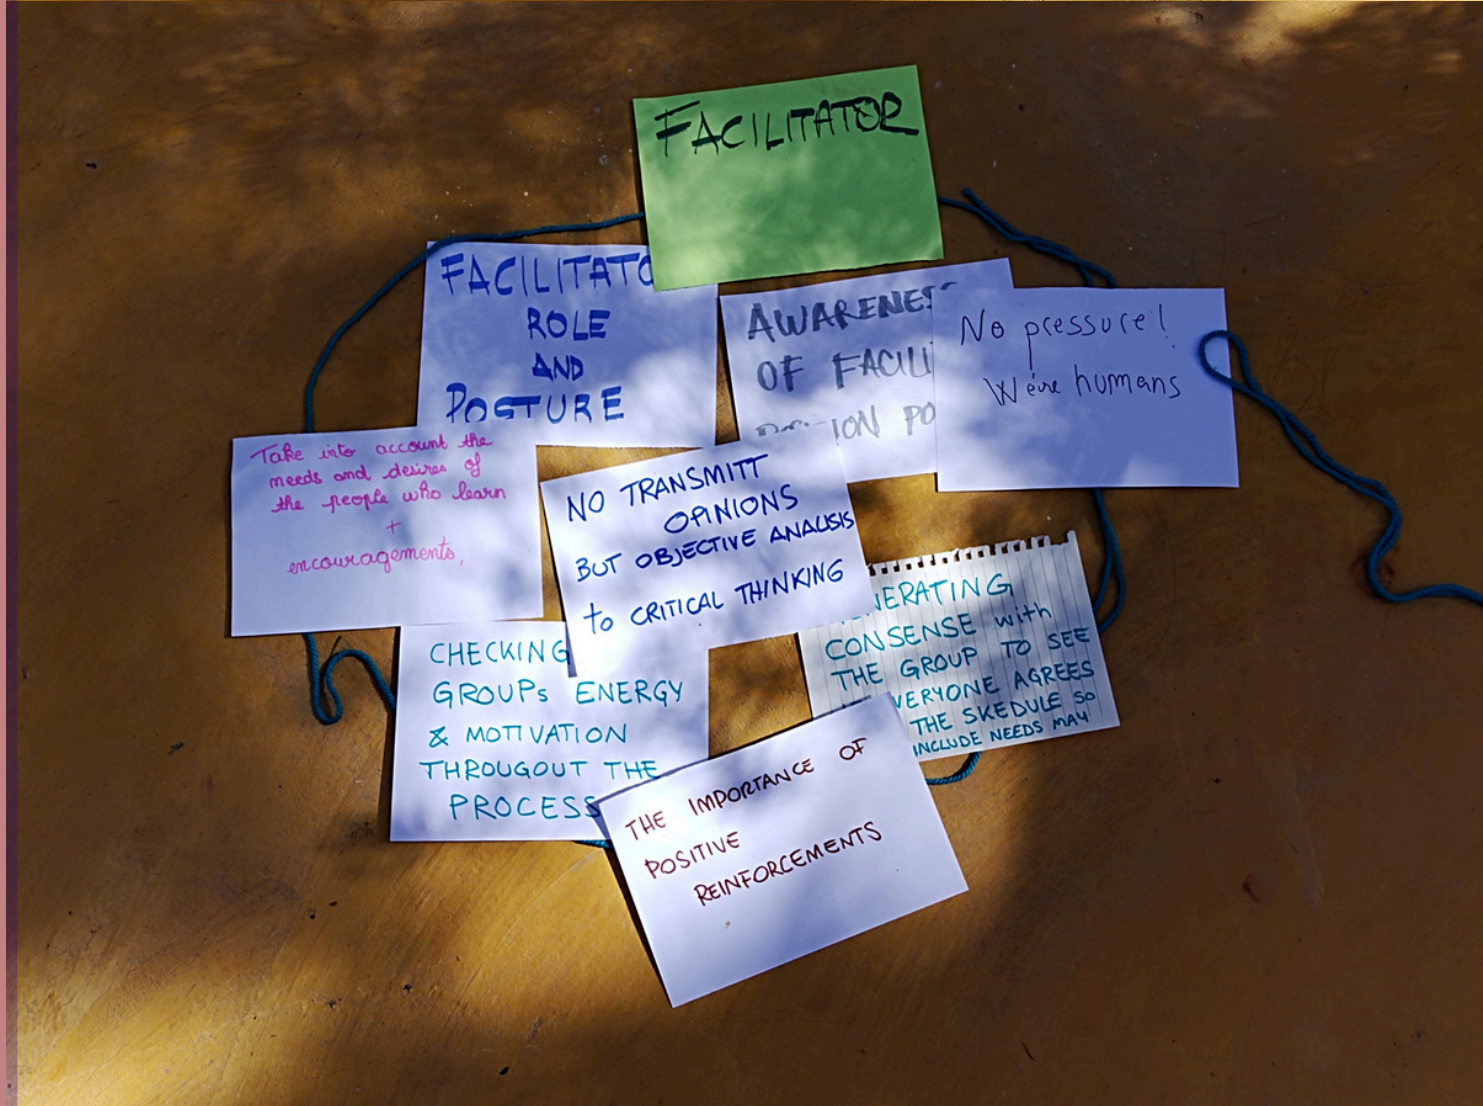 FACILITATOR
FACILITATO
ROLE
AND
POSTURE
AWARENES
OF FACILI
ION PO
No pressure!
We're humans
Take into account the
needs and desires of
the people who learn
+
encouragements,
NO TRANSMITT
OPINIONS
BUT OBJECTIVE ANALISIS
to CRITICAL THINKING
NERATING
CONSENSE with
THE GROUP TO SEE
VERYONE AGREES
THE SKEDULE SO
INCLUDE NEEDS MAY
CHECKING
GROUPs ENERGY
& MOTIVATION
THROUGOUT THE
PROCESS
THE IMPORTANCE OF
POSITIVE
REINFORCEMENTS